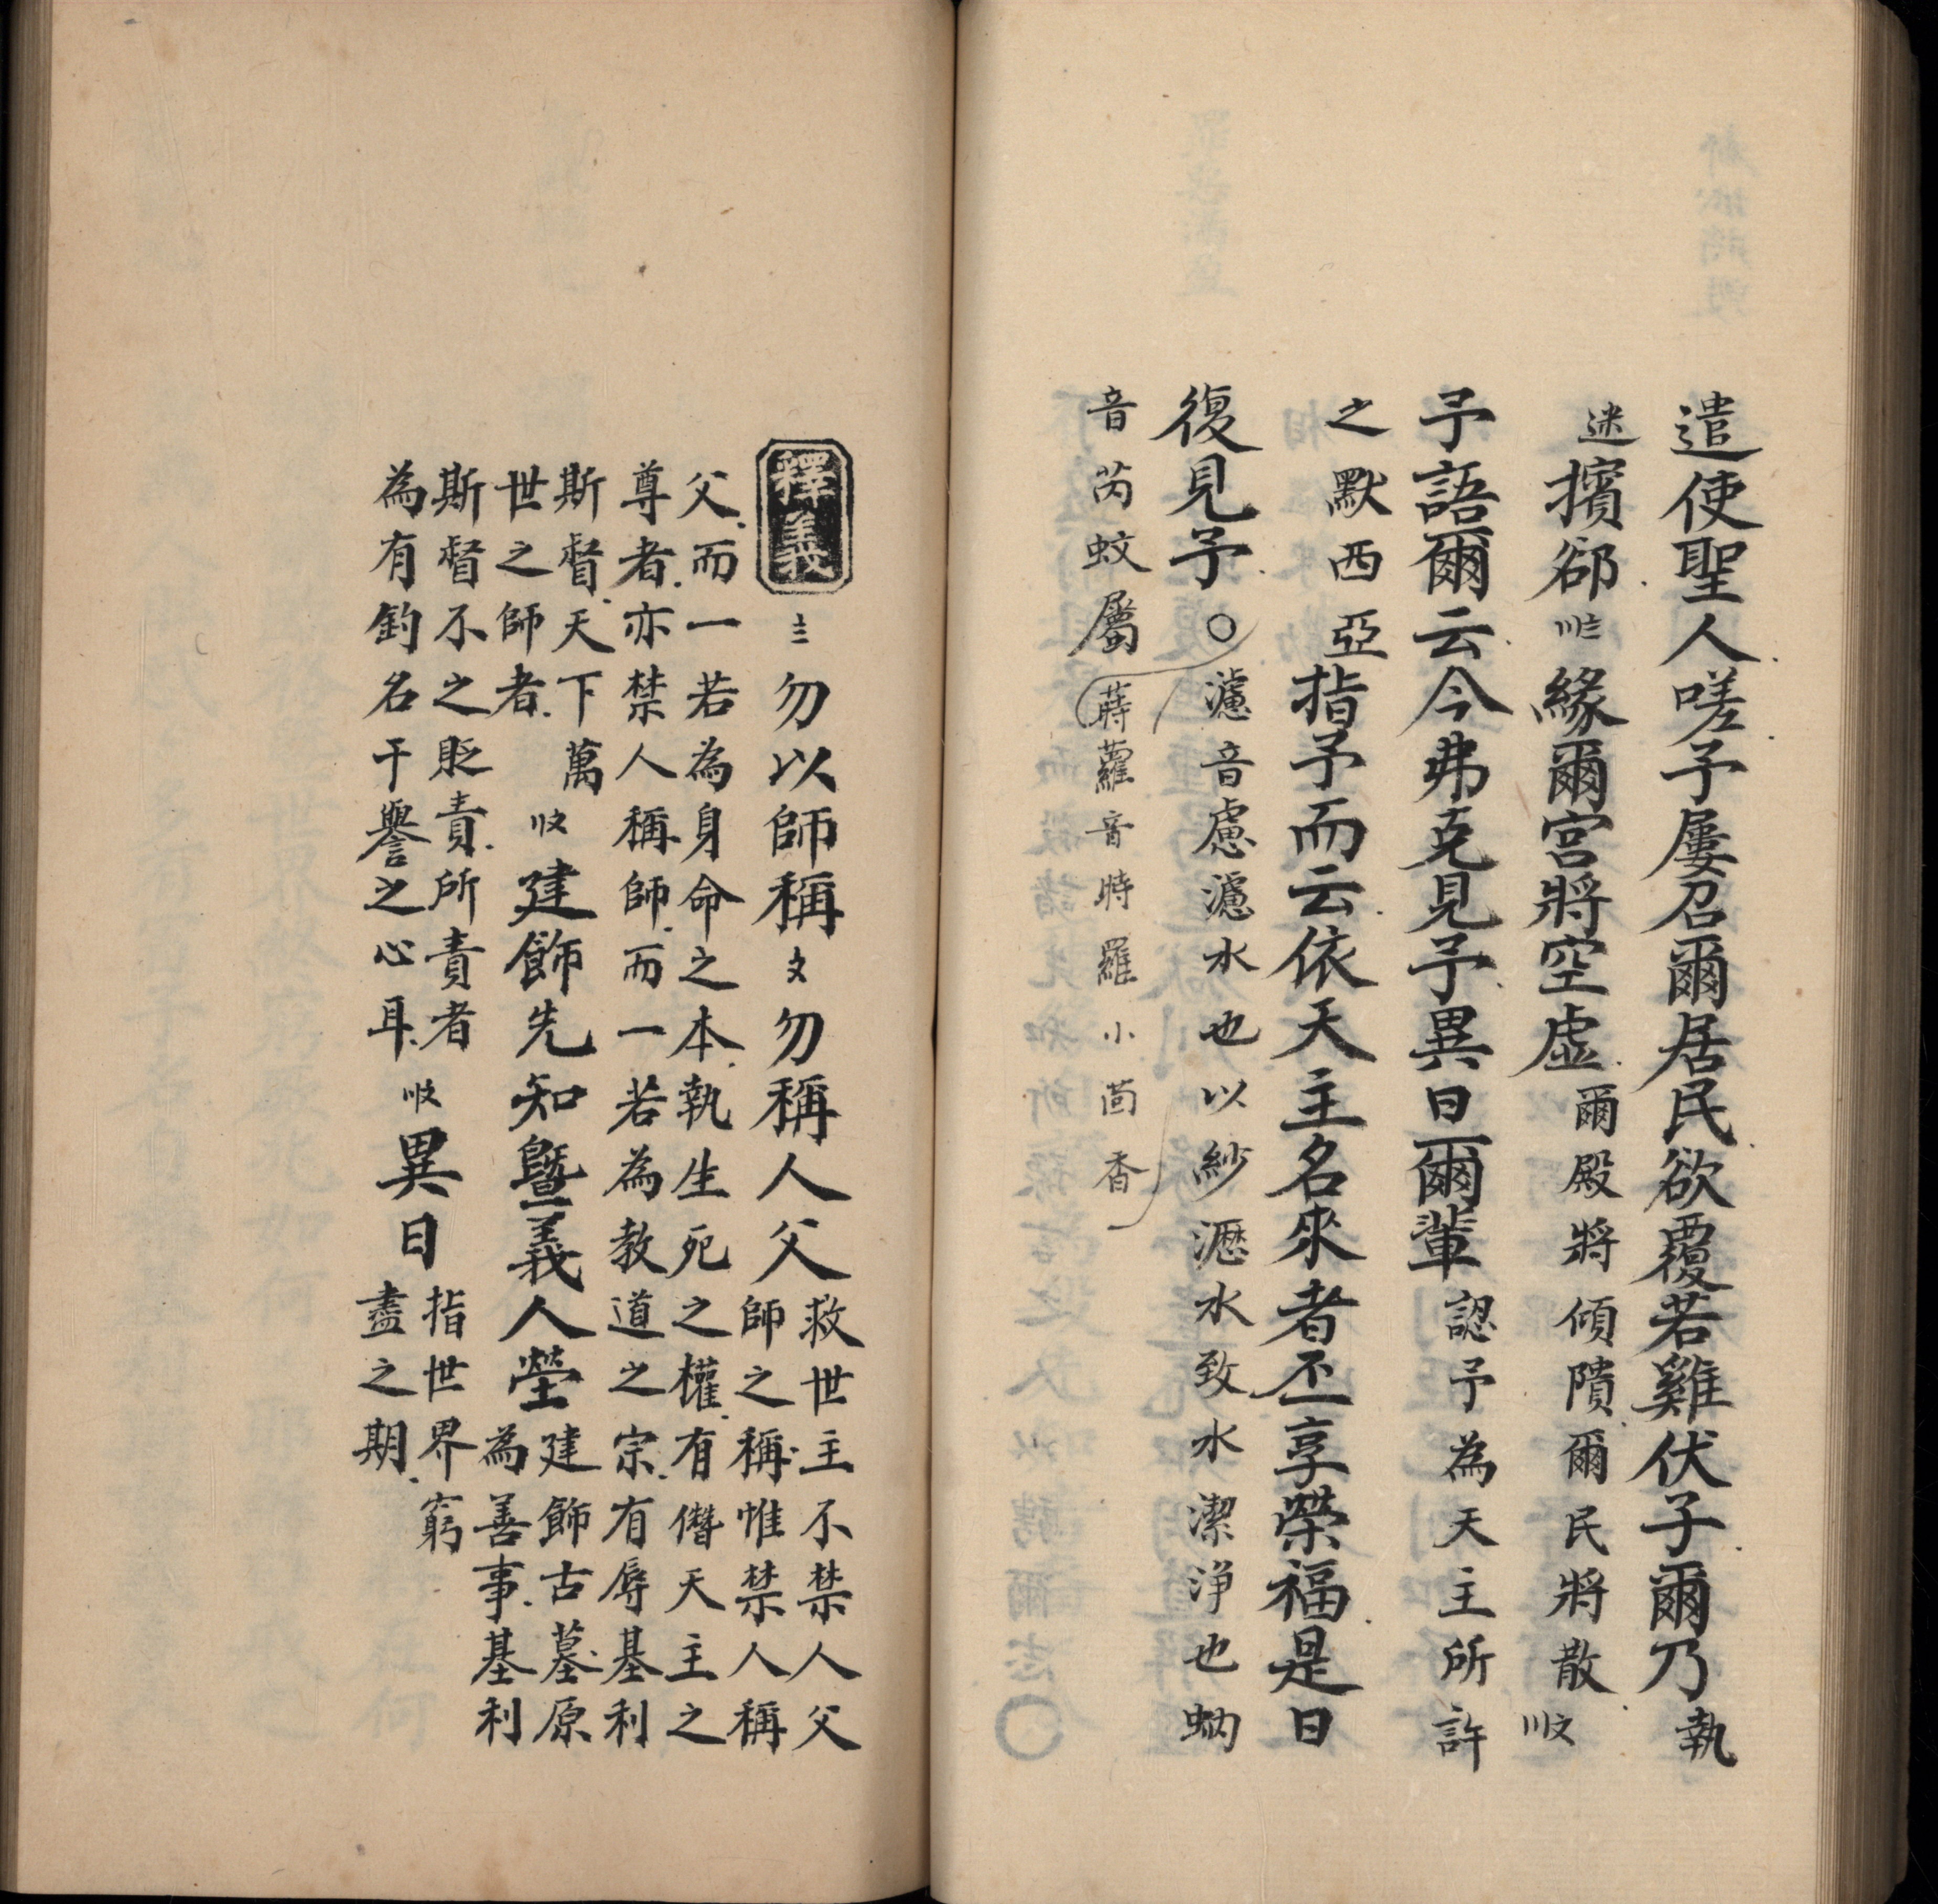 遣使聖人嗟予屢召爾居民欲覆若雞伏子爾乃執
迷擯郤〣〨緣爾宮將空虛爾殿將傾隤爾民將散〣〩
予語爾云今弗克見予異日爾輩認予為天主所許
之默西亞指予而云依天主名來者丕享榮福是日
復見予○濾音慮濾水也以紗瀝水致水潔淨也蚋
音芮蚊屬蒔蘿音時羅小茴香
釋義
勿以師稱勿稱人父救世主不禁人父
師之稱惟禁人稱
父而一若為身命之本執生死之權有僭天主之
尊者亦禁人稱師而一若為教道之宗有辱基利
斯督天下萬
世之師者建飾先知曁義人塋建飾古墓原
為善事基利
斯督不之貶責所責者
為有釣名干譽之心耳異日指世界窮
盡之期